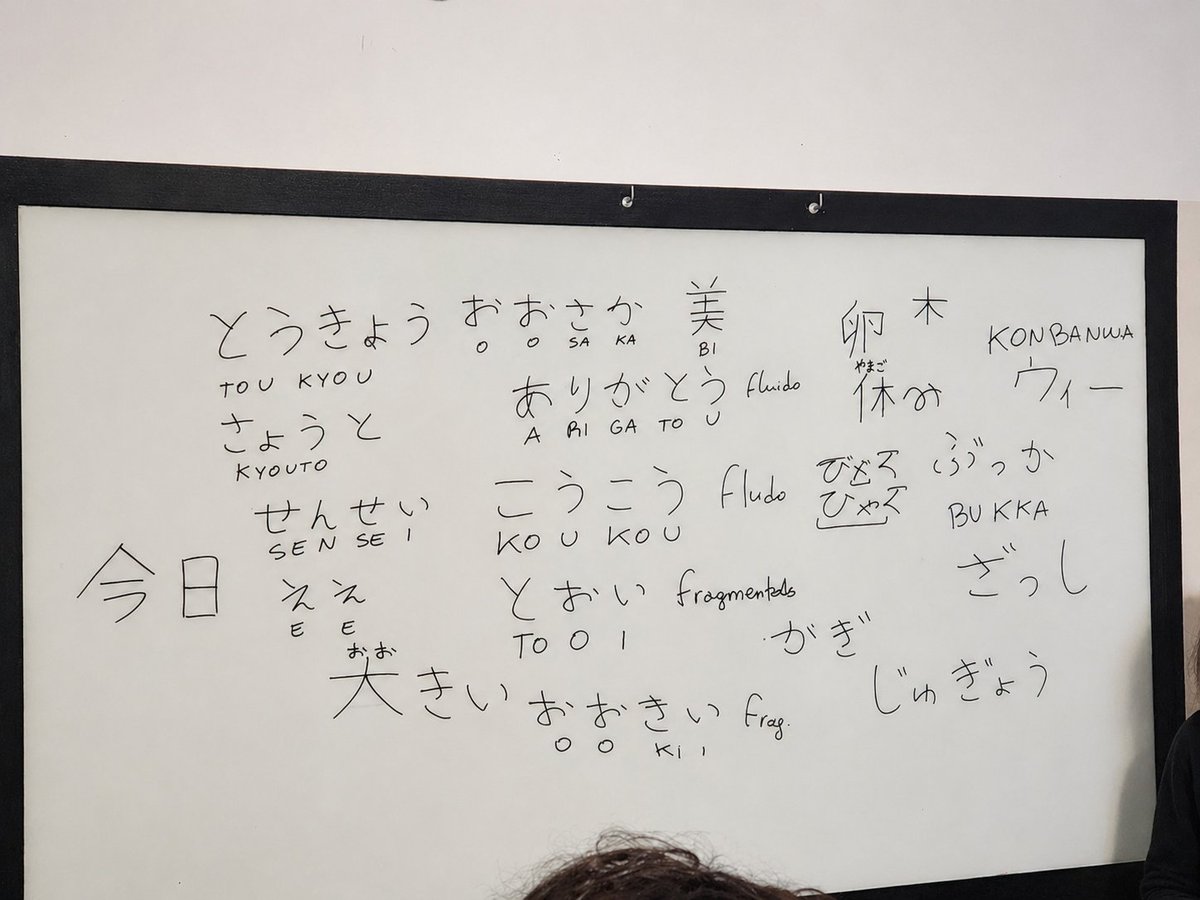 とうきょう
TOU KYOU
さょうと
KYOUTO
せんせい
SEN SE I
今日
ええ
E E
おお
大きい
おおさか
O O SA KA
美
BI
ありがとう fluido
A RI GA TO U
こうこう fludo
KO U KO U
とおい
TO O I
おおきい frag.
O O Ki i
卵 木
やまご
休み
KONBANWA
ウィー
ぶっか
BUKKA
ざっし
がぎ
じゅぎょう